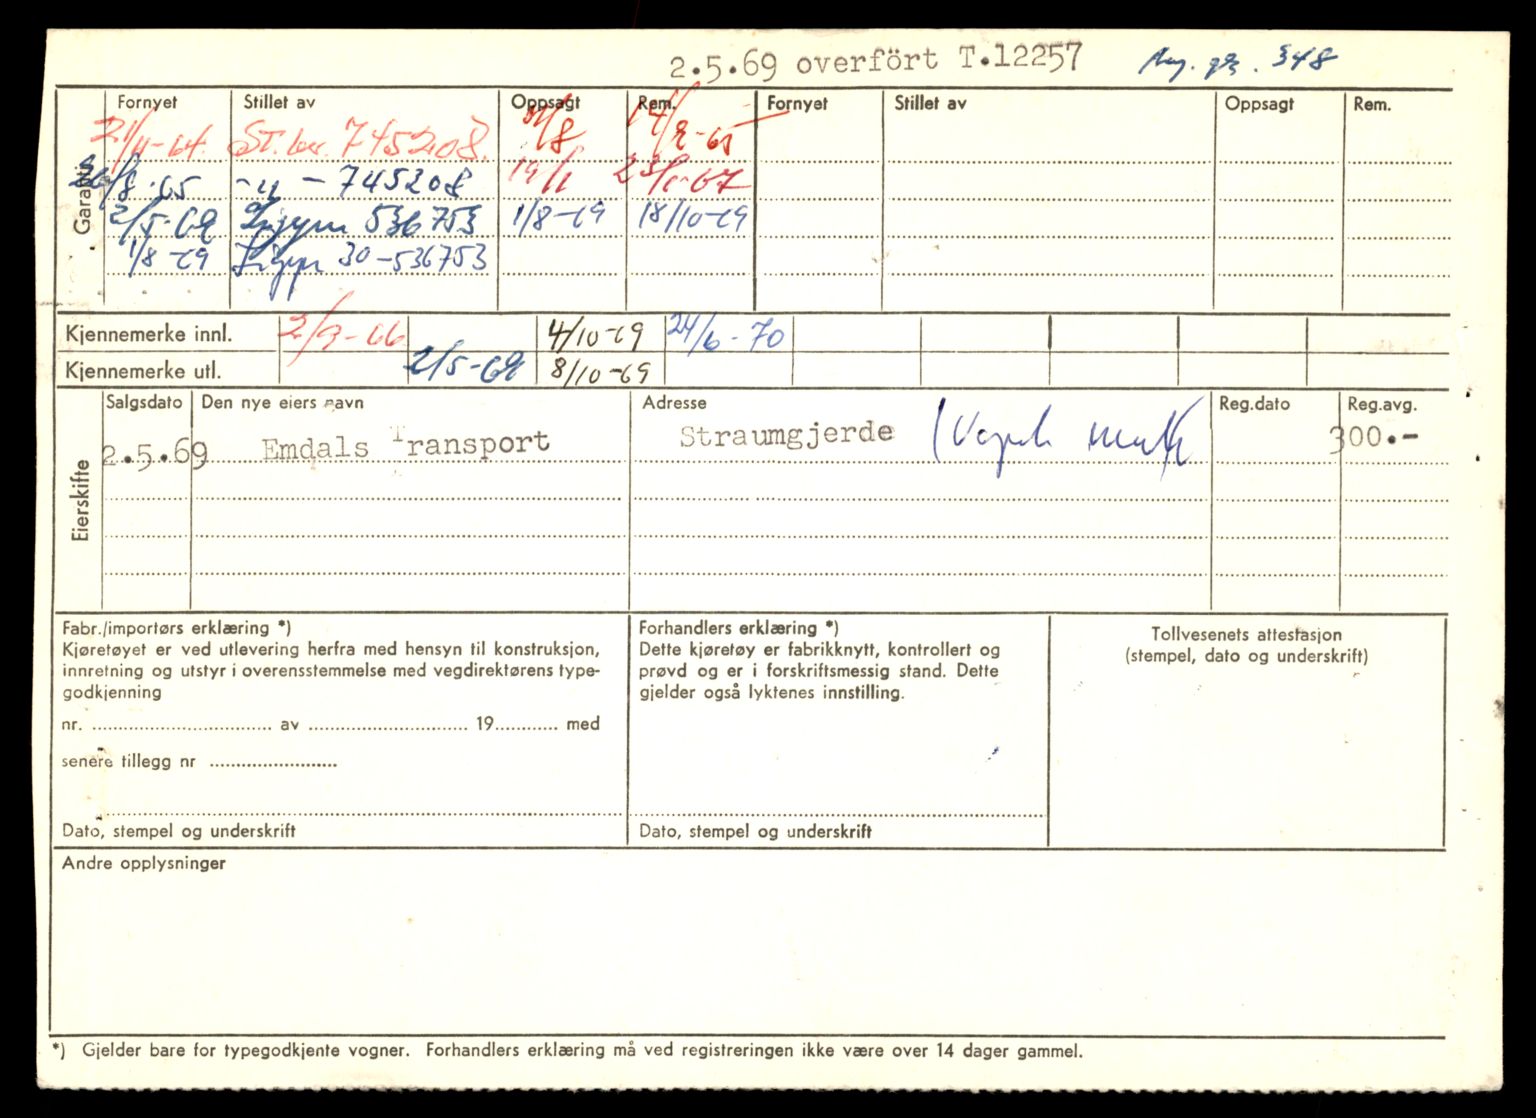 2.5.69 overfört T.12257 348
Fornyet Stillet av Oppsagt Rem. Fornyet Stillet av Oppsagt Rem.
Garanti
21/11-64. St.br. 745208.
26/8-65 -"- 745208 19/1 23/1-67
2/5-69 536753 1/8-69 18/10-69
1/8-69 30-536753
Kjennemerke innl. 2/9-66 4/10-69 24/6-70
Kjennemerke utl. 2/5-69 8/10-69
Eierskifte
Salgsdato Den nye eiers navn Adresse Reg.dato Reg.avg.
2.5.69 Emdals Transport Straumgjerde 300.-
Fabr./importørs erklæring *)
Kjøretøyet er ved utlevering herfra med hensyn til konstruksjon,
innretning og utstyr i overensstemmelse med vegdirektørens type-
godkjenning
nr. ................................ av ............................ 19........... med
senere tillegg nr .......................
Dato, stempel og underskrift
Forhandlers erklæring *)
Dette kjøretøy er fabrikknytt, kontrollert og
prøvd og er i forskriftsmessig stand. Dette
gjelder også lyktenes innstilling.
Dato, stempel og underskrift
Tollvesenets attestasjon
(stempel, dato og underskrift)
Andre opplysninger
*) Gjelder bare for typegodkjente vogner. Forhandlers erklæring må ved registreringen ikke være over 14 dager gammel.